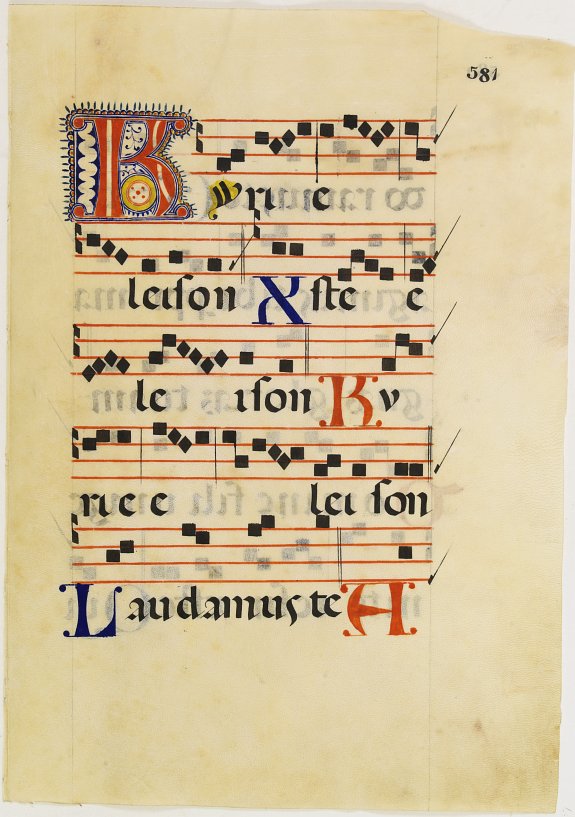 581
Kyrie
leison Xste e
le ison Ky
rie e lei son
Laudamus te A